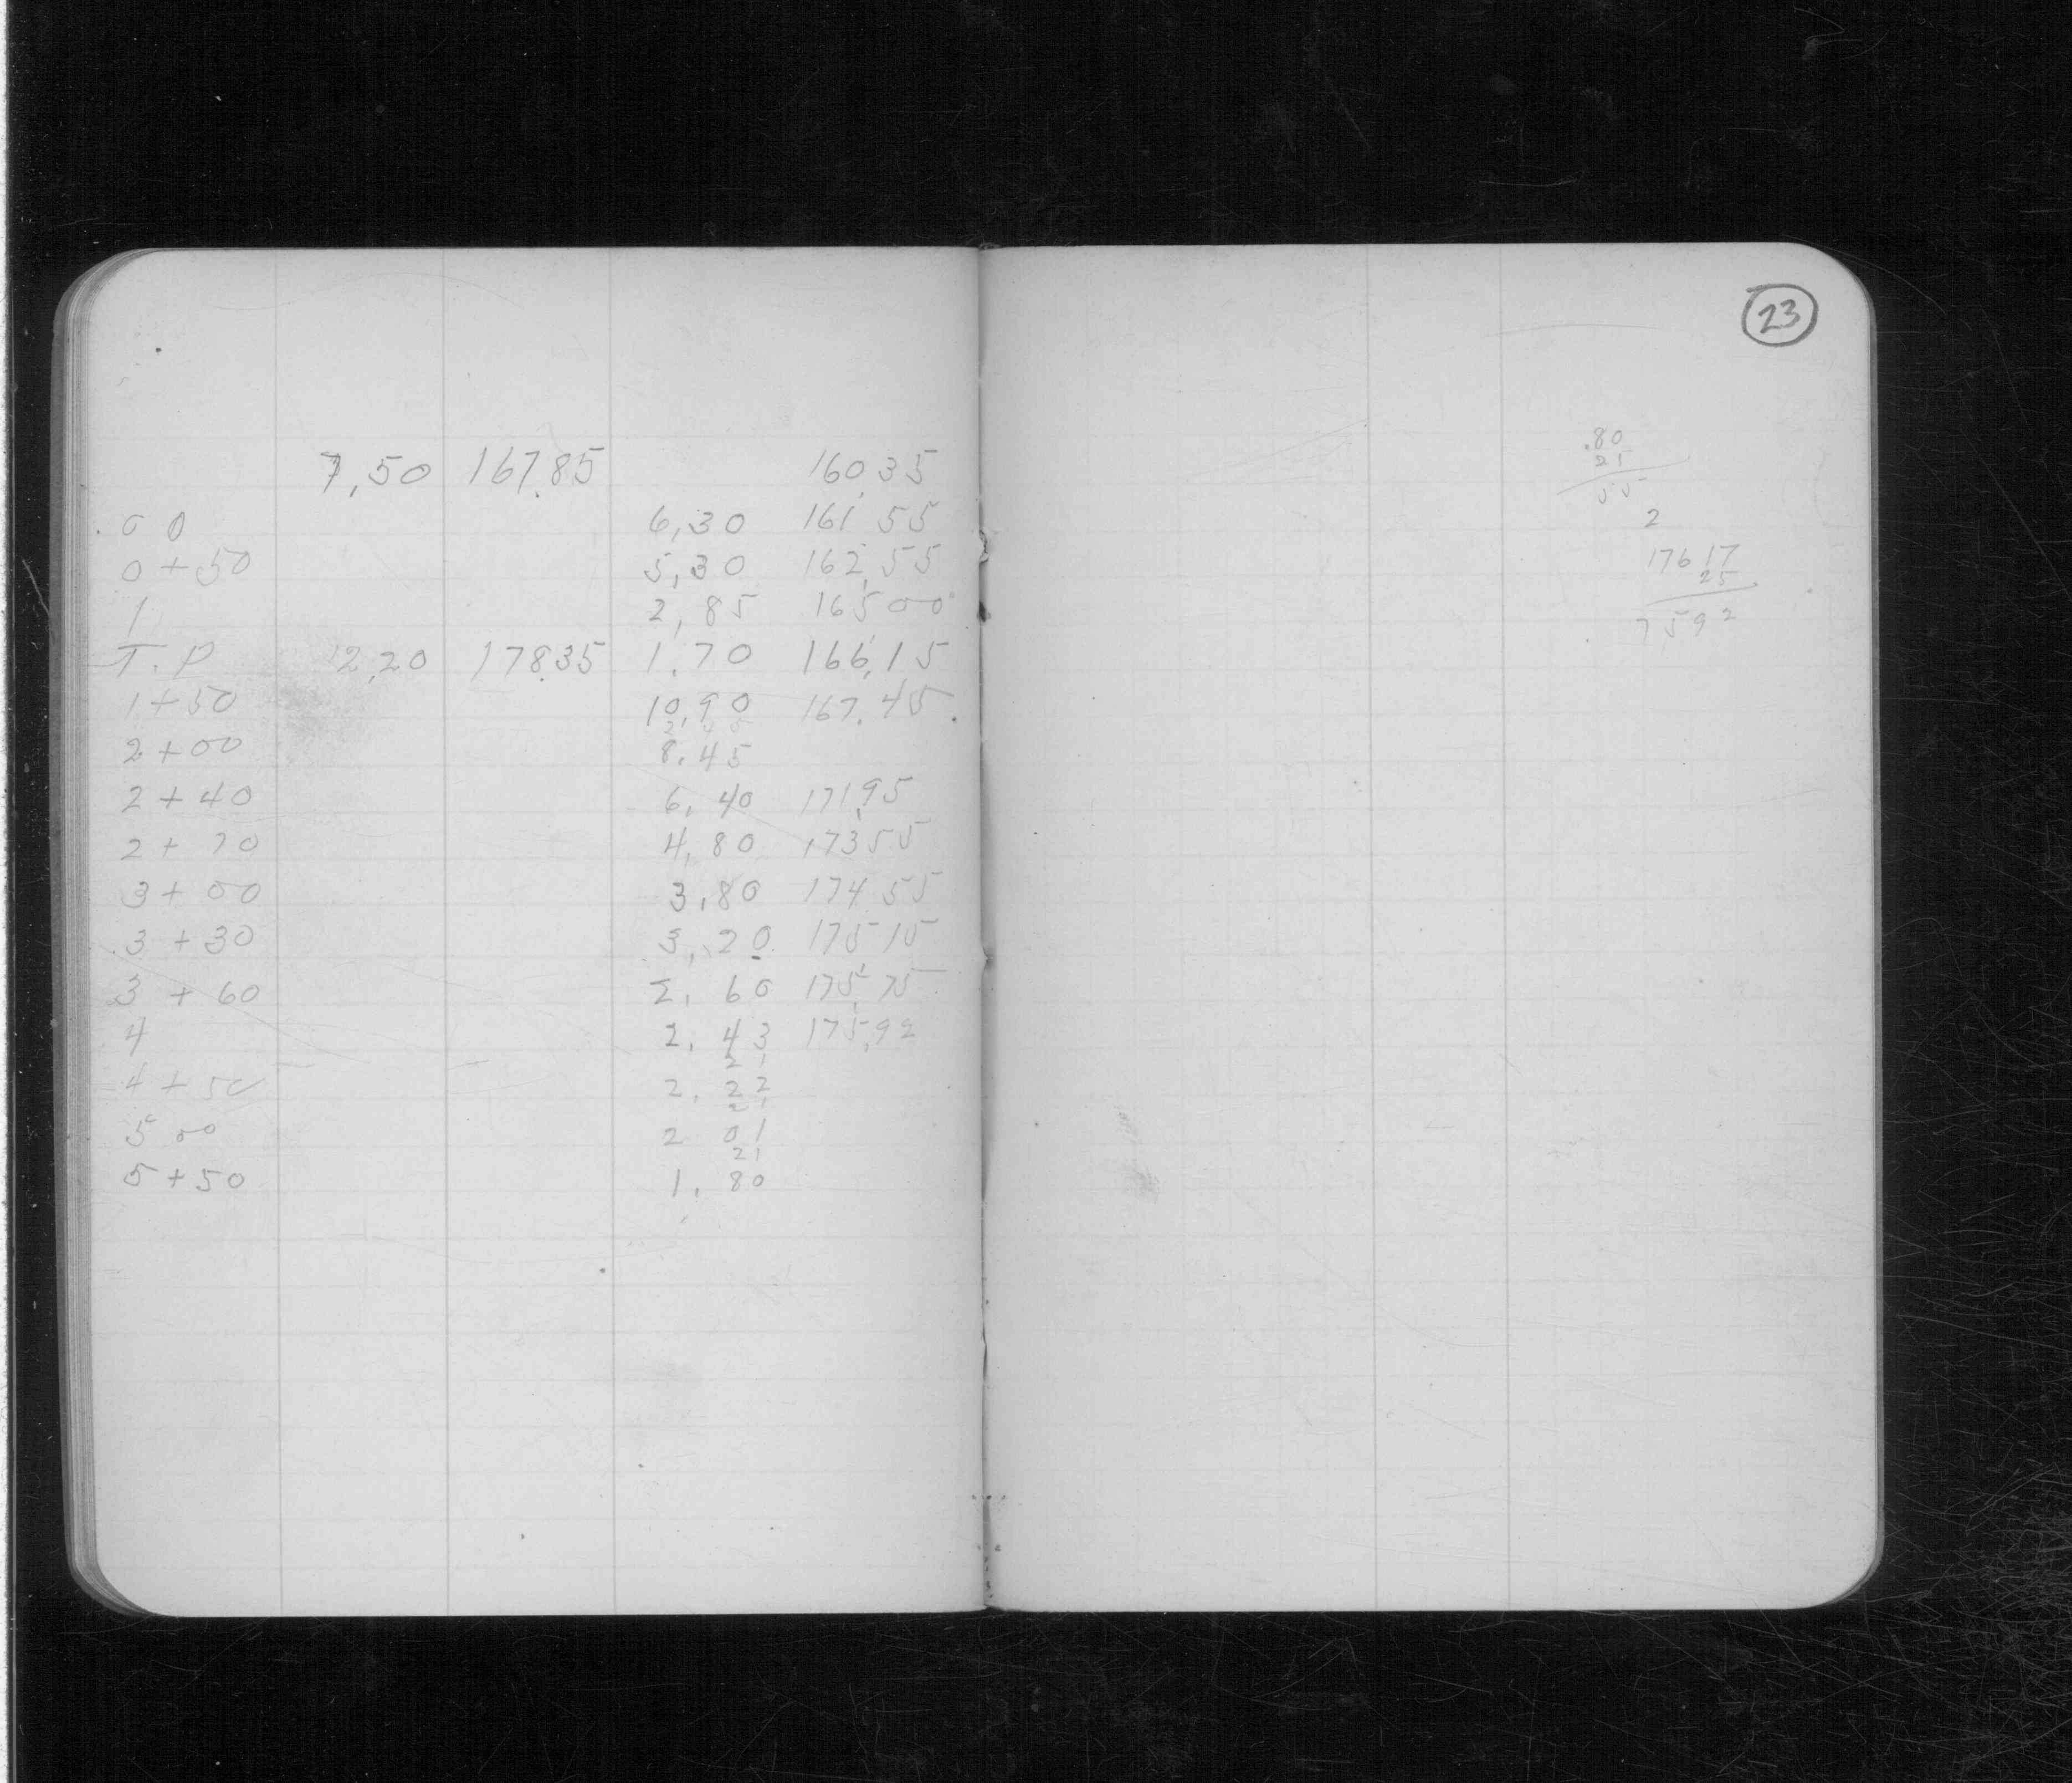 7,50 167.85 160.35
00 6,30 161.55
0+50 5,30 162,55
1 2,85 165 00
T.P 12,20 178.35 1.70 166,15
1+50 10,90 167.45
2+00 8.45
2+40 6, 40 171.95
2+ 70 4,80 173 55
3+ 00 3,80 174 55
3 +30 3, 20 175 15
3 +60 2, 60 175,75
4 2. 43 175,92
21
4+50 2. 22
21
5 00 2 01
21
5+50 1, 80
23
.80
21
55
2
176 17
25
7592